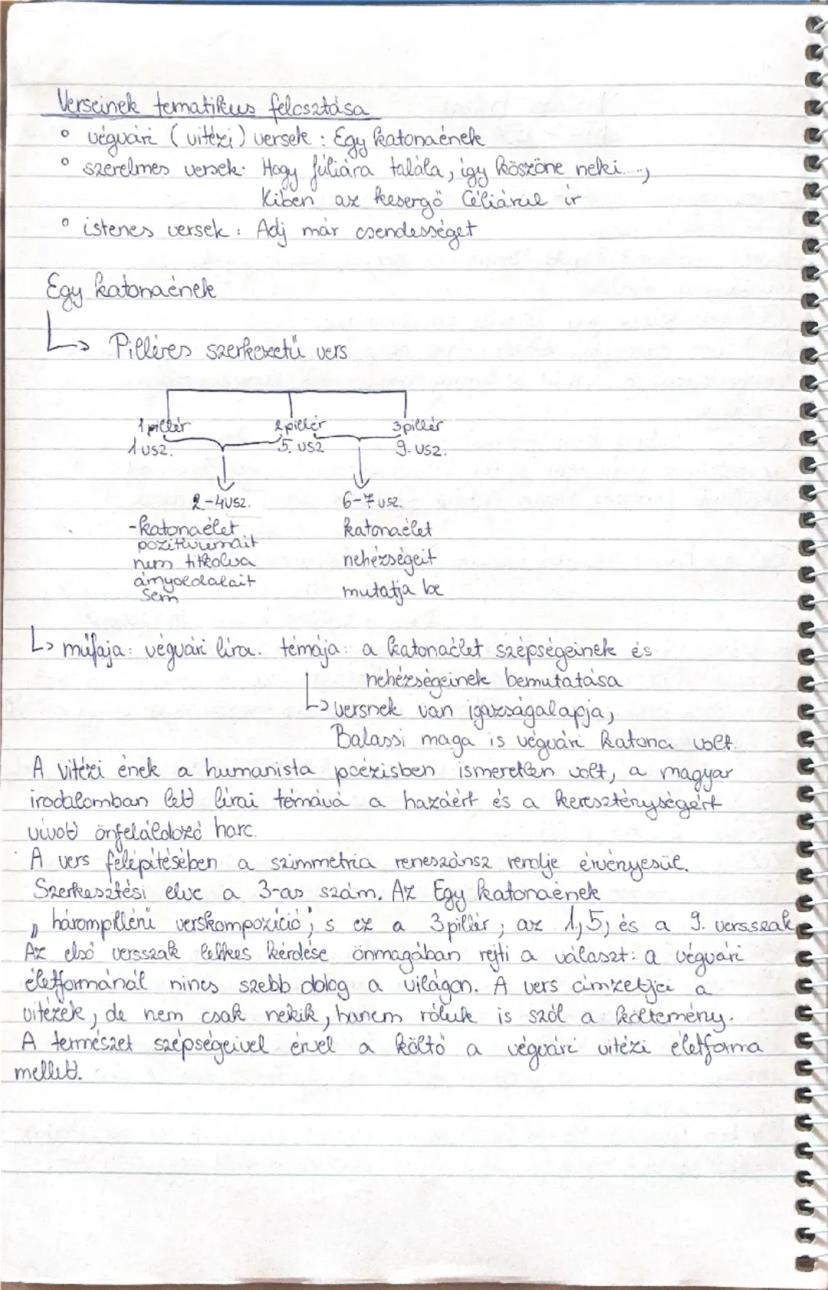 Verseinek tematikus felosztása
° végvári (vitézi) versek: Egy katonaének
° szerelmes versek: Hogy Júliára talála, így köszöne neki...,
Kiben az kesergő Céliárul ír
° istenes versek: Adj már csendességet
Egy katonaének
↳ Pilléres szerkezetű vers
1 pillér 2 pillér 3 pillér
1 vsz. 5. vsz 9. vsz.
2-4 vsz. 6-7 vsz.
-katonaélet katonaélet
pozitívumait
nem titkolva nehézségeit
árnyoldalait
sem mutatja be
↳ műfaja: végvári líra. témája: a katonaélet szépségeinek és
nehézségeinek bemutatása
↳ versnek van igazságalapja,
Balassi maga is végvári katona volt.
A vitézi ének a humanista poézisben ismeretlen volt, a magyar
irodalomban lett lírai témává a hazáért és a kereszténységért
vívott önfeláldozó harc.
A vers felépítésében a szimmetria reneszánsz rendje érvényesül.
Szerkesztési elve a 3-as szám. Az Egy katonaének
„hárompilléru verskompozíció", s ez a 3 pillér, az 1, 5, és a 9. versszak
Az első versszak lelkes kérdése önmagában rejti a választ: a végvári
életformánál nincs szebb dolog a világon. A vers címzetjei a
vitézek, de nem csak nekik, hanem róluk is szól a költemény.
A természet szépségeivel érvel a költő a végvári vitézi életforma
mellett.